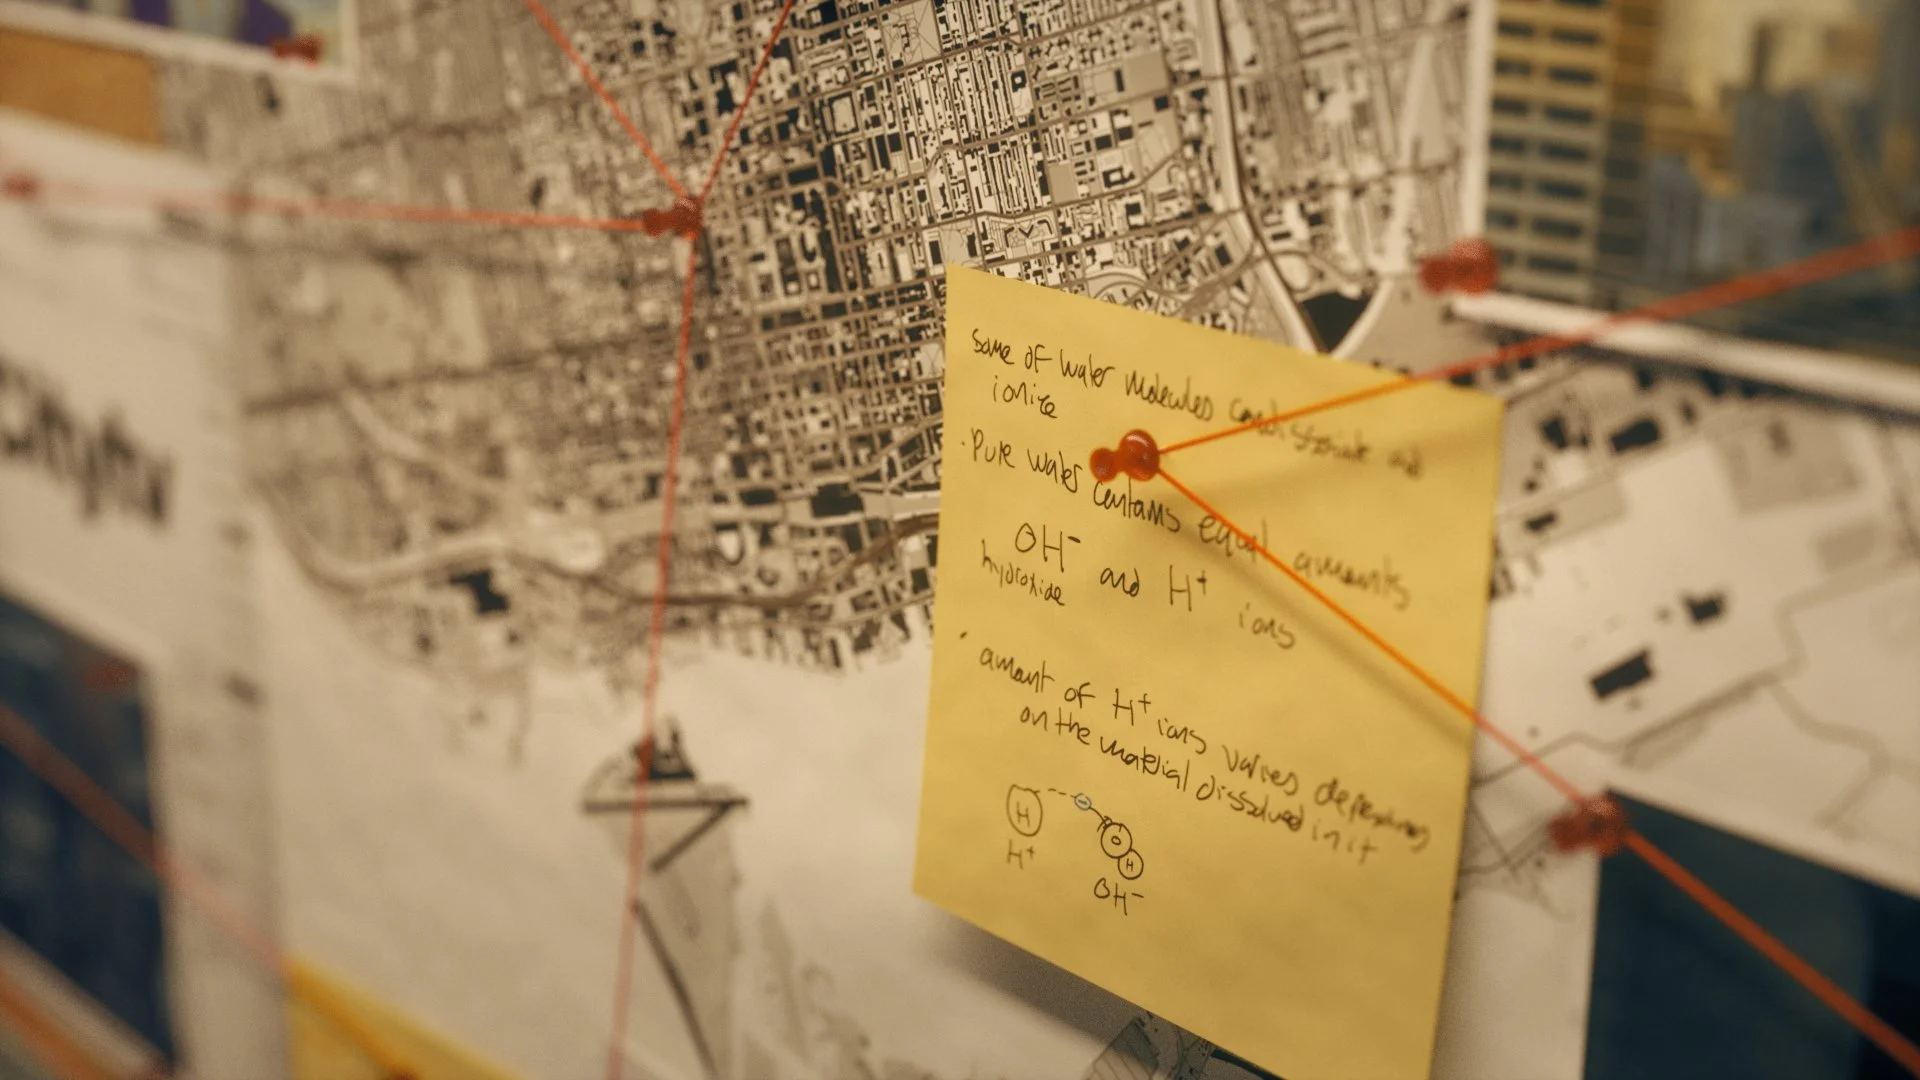 Some of water molecules can dissociate and
ionize
· Pure water contains equal amounts
OH⁻ and H⁺ ions
hydroxide
· amount of H⁺ ions varies depending
on the material dissolved in it
H O H
H⁺ OH⁻